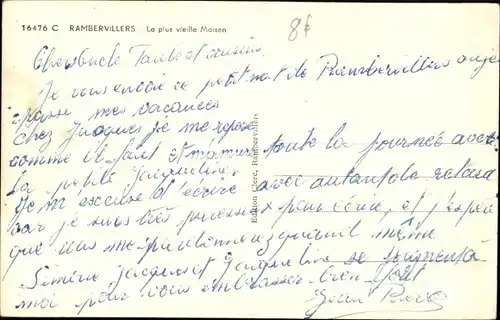 16476 C RAMBERVILLERS La plus vieille Maison
8f
Chers oncle Tante et cousins
Je vous envoie ce petit mot de Rambervillers ou je
passe mes vacances
chez Jacques je me repose
comme il faut et m'amuse toute la journée avec
la petite Jacqueline
Je m'excuse d'écrire avec autant de retard
car je suis très paresseux pour écrire, et j'espère
que vous me pardonnerez quand même
Simone Jacques et Jacqueline se joignent à
moi pour vous embrasser bien fort
Jean
Edition Géré, Rambervillers